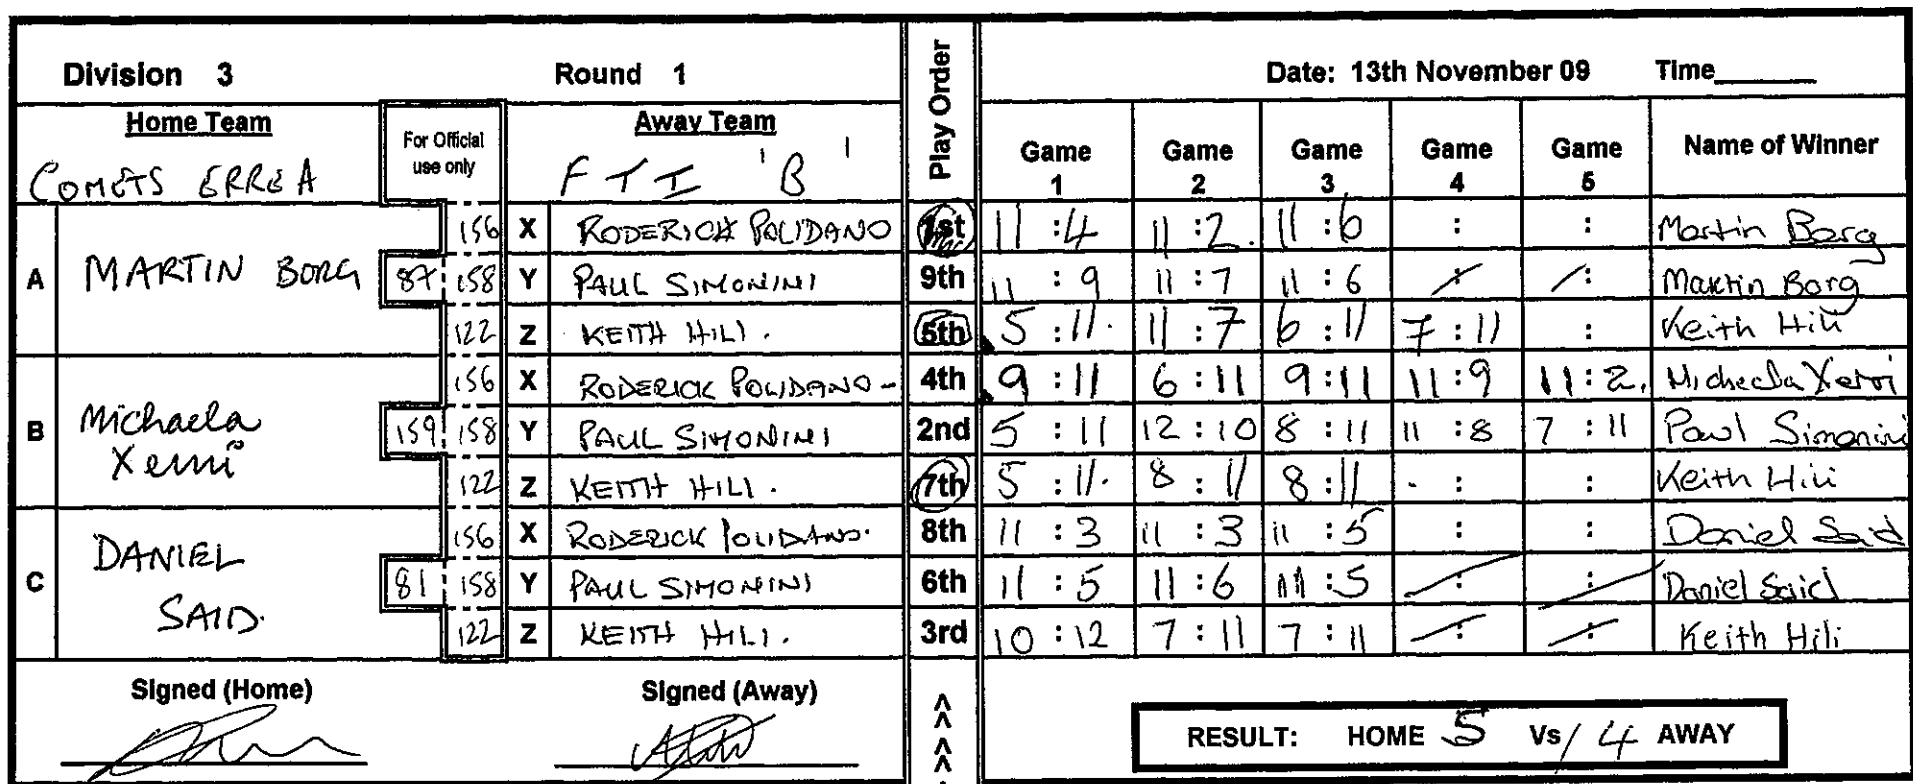 Division 3 Round 1 Play Order Date: 13th November 09 Time
Home Team For Official use only Away Team Game 1 Game 2 Game 3 Game 4 Game 5 Name of Winner
COMETS ERREA FTI 'B'
A MARTIN BORG 87 156 X RODERICK POLIDANO 1st 11 : 4 11 : 2 11 : 6 : : Martin Borg
158 Y PAUL SIMONINI 9th 11 : 9 11 : 7 11 : 6 : : Martin Borg
122 Z KEITH HILI. 5th 5 : 11 11 : 7 6 : 11 7 : 11 : Keith Hili
B Michaela Xerri 159 156 X RODERICK POLIDANO - 4th 9 : 11 6 : 11 9 : 11 11 : 9 11 : 2. Michaela Xerri
158 Y PAUL SIMONINI 2nd 5 : 11 12 : 10 8 : 11 11 : 8 7 : 11 Paul Simonini
122 Z KEITH HILI. 7th 5 : 11 8 : 11 8 : 11 : : Keith Hili
C DANIEL SAID. 81 156 X RODERICK POLIDANO. 8th 11 : 3 11 : 3 11 : 5 : : Daniel Said
158 Y PAUL SIMONINI 6th 11 : 5 11 : 6 11 : 5 : : Daniel Said
122 Z KEITH HILI. 3rd 10 : 12 7 : 11 7 : 11 : : Keith Hili
Signed (Home) Signed (Away) < < < <
RESULT: HOME 5 Vs / 4 AWAY